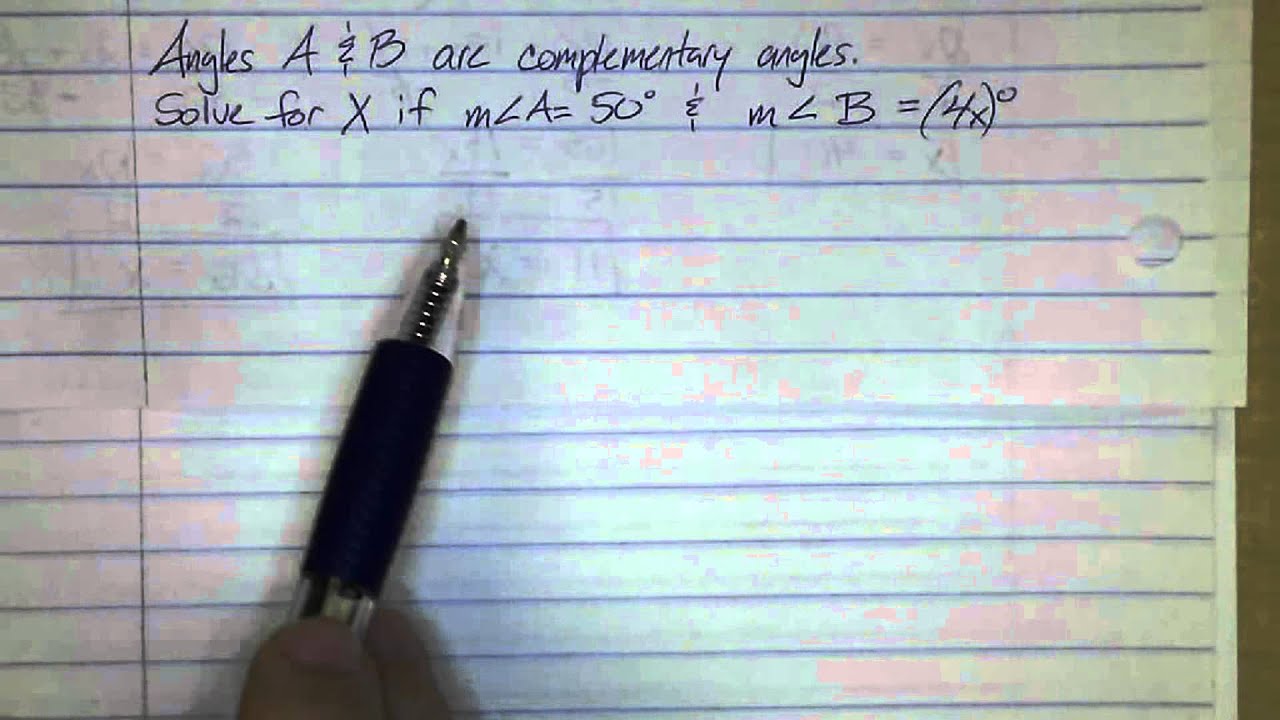 Angles A & B are complementary angles.
Solve for X if m∠A= 50° & m∠ B = (4x)°